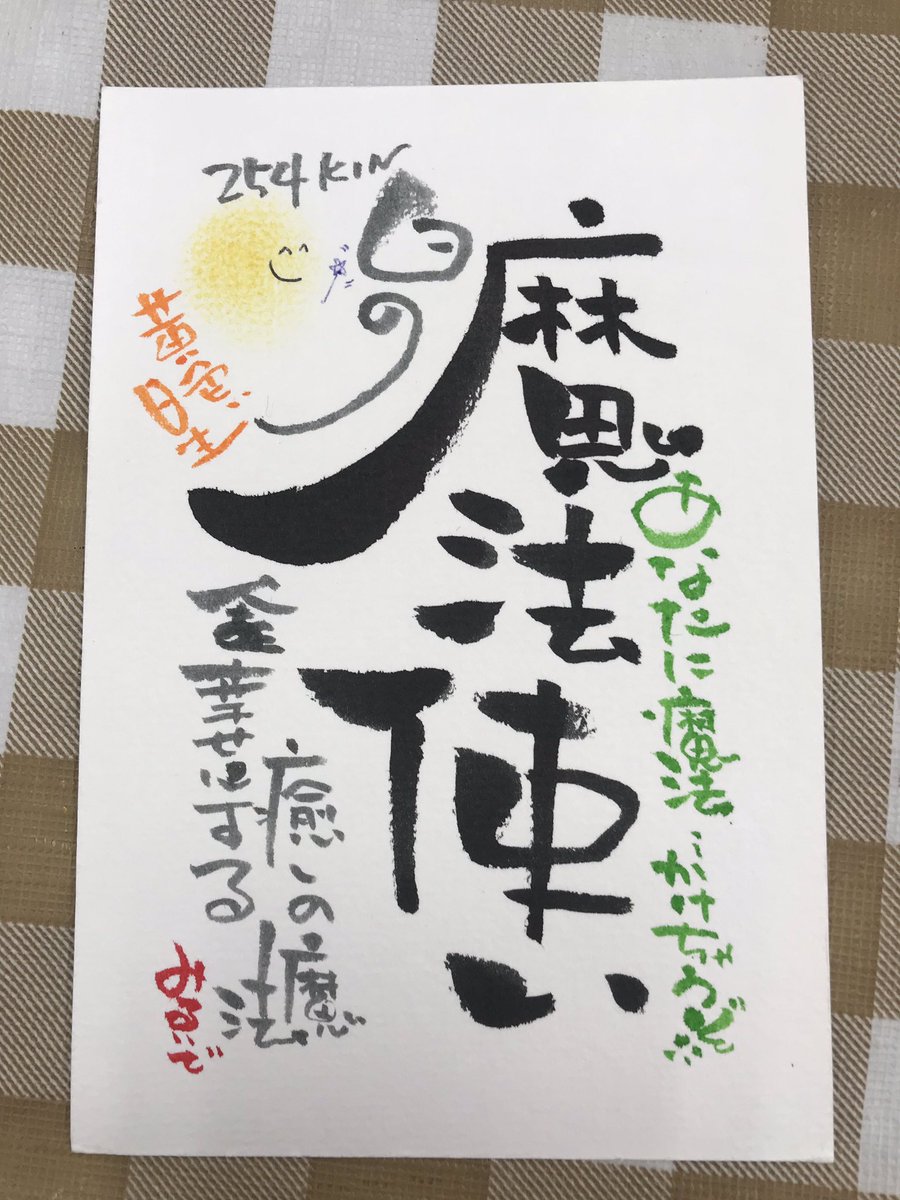 254 KIN
白の
魔法使い
黄色い星
あなたに魔法かけちゃうぞ
癒しの魔法
幸せにする